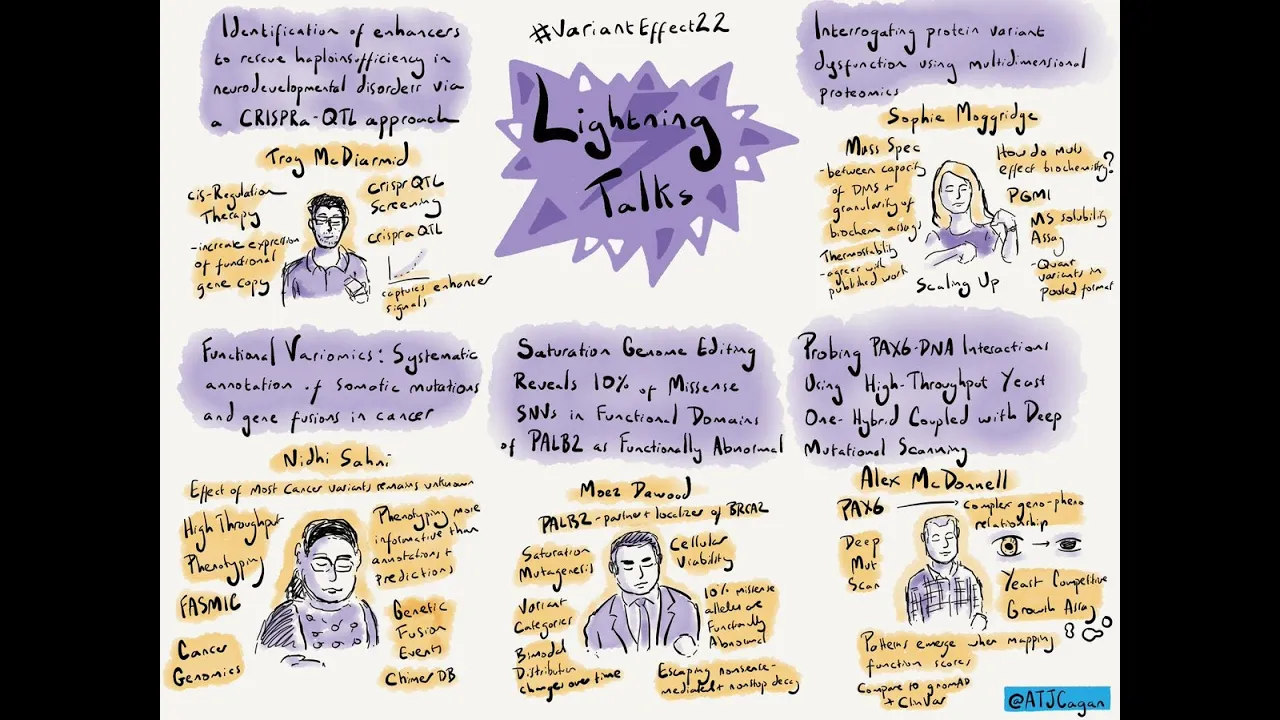 Identification of enhancers
to rescue haploinsufficiency in
neurodevelopmental disorders via
a CRISPRa-QTL approach
Troy McDiarmid
cis-Regulation
Therapy
-increase expression
of functional
gene copy
Crispr QTL
Screening
crispra QTL
captures enhancer
signals
#VariantEffect22
Lightning
Talks
Interrogating protein variant
dysfunction using multidimensional
proteomics
Sophie Moggridge
Mass Spec
-between capacity
of DMS +
granularity of
biochem assays
Thermostability
-agrees with
published work
How do muts
effect biochemistry?
PGM1
MS solubility
Assay
-Quant
variants in
pooled format
Scaling Up
Functional Variomics: Systematic
annotation of somatic mutations
and gene fusions in cancer
Nidhi Sahni
Effect of Most Cancer variants remains unknown
High Throughput
Phenotyping
FASMIC
Cancer
Genomics
Phenotyping more
informative than
annotations +
predictions
Genetic
Fusion
Events
Chimer DB
Saturation Genome Editing
Reveals 10% of Missense
SNVs in Functional Domains
of PALB2 as Functionally Abnormal
Moez Dawood
PALB2-partner + localizer of BRCA2
Saturation
Mutagenesis
Variant
Categories
Bimodal
Distribution
changes over time
Cellular
Viability
10% missense
alleles are
Functionally
Abnormal
Escaping nonsense-
mediated + nonstop decay
Probing PAX6-DNA Interactions
Using High-Throughput Yeast
One-Hybrid Coupled with Deep
Mutational Scanning
Alex McDonnell
PAX6
complex geno-pheno
relationship
Deep
Mut
Scan
Yeast Competitive
Growth Assay
Patterns emerge when mapping
function scores
Compare to gnomAD
+ ClinVar
@ATJCagan